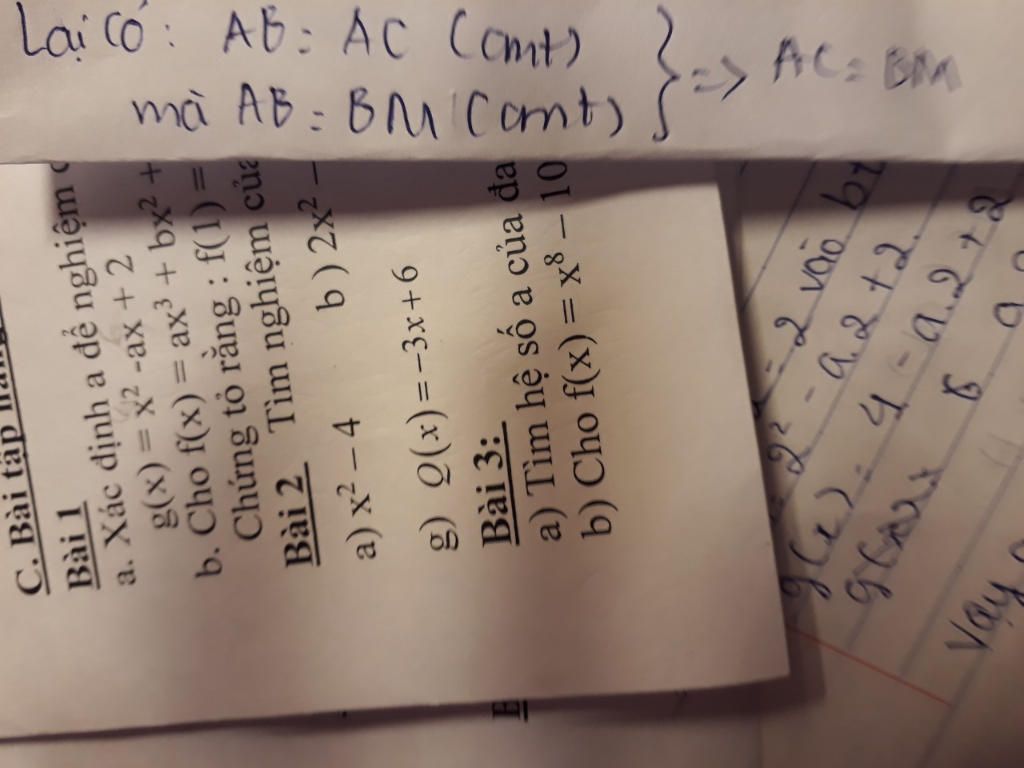 Lại có: AB = AC (cmt)
mà AB = BM (cmt) } => AC = BM
C. Bài tập
Bài 1
a. Xác định a để nghiệm
g(x) = x² -ax + 2
b. Cho f(x) = ax³ + bx² +
Chứng tỏ rằng : f(1) =
Bài 2 Tìm nghiệm của
a) x² – 4 b) 2x² –
g) Q(x) = −3x + 6
Bài 3:
a) Tìm hệ số a của đa
b) Cho f(x) = x⁸ – 10
= 2 vào
2² - a.2 + 2
g(x) = 4 - a.2 + 2
Vậy